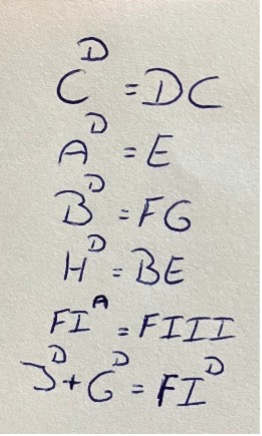 Cᴰ = DC
Aᴰ = E
Bᴰ = FG
Hᴰ = BE
FIᴬ = FIII
Jᴰ + Gᴰ = FIᴰ